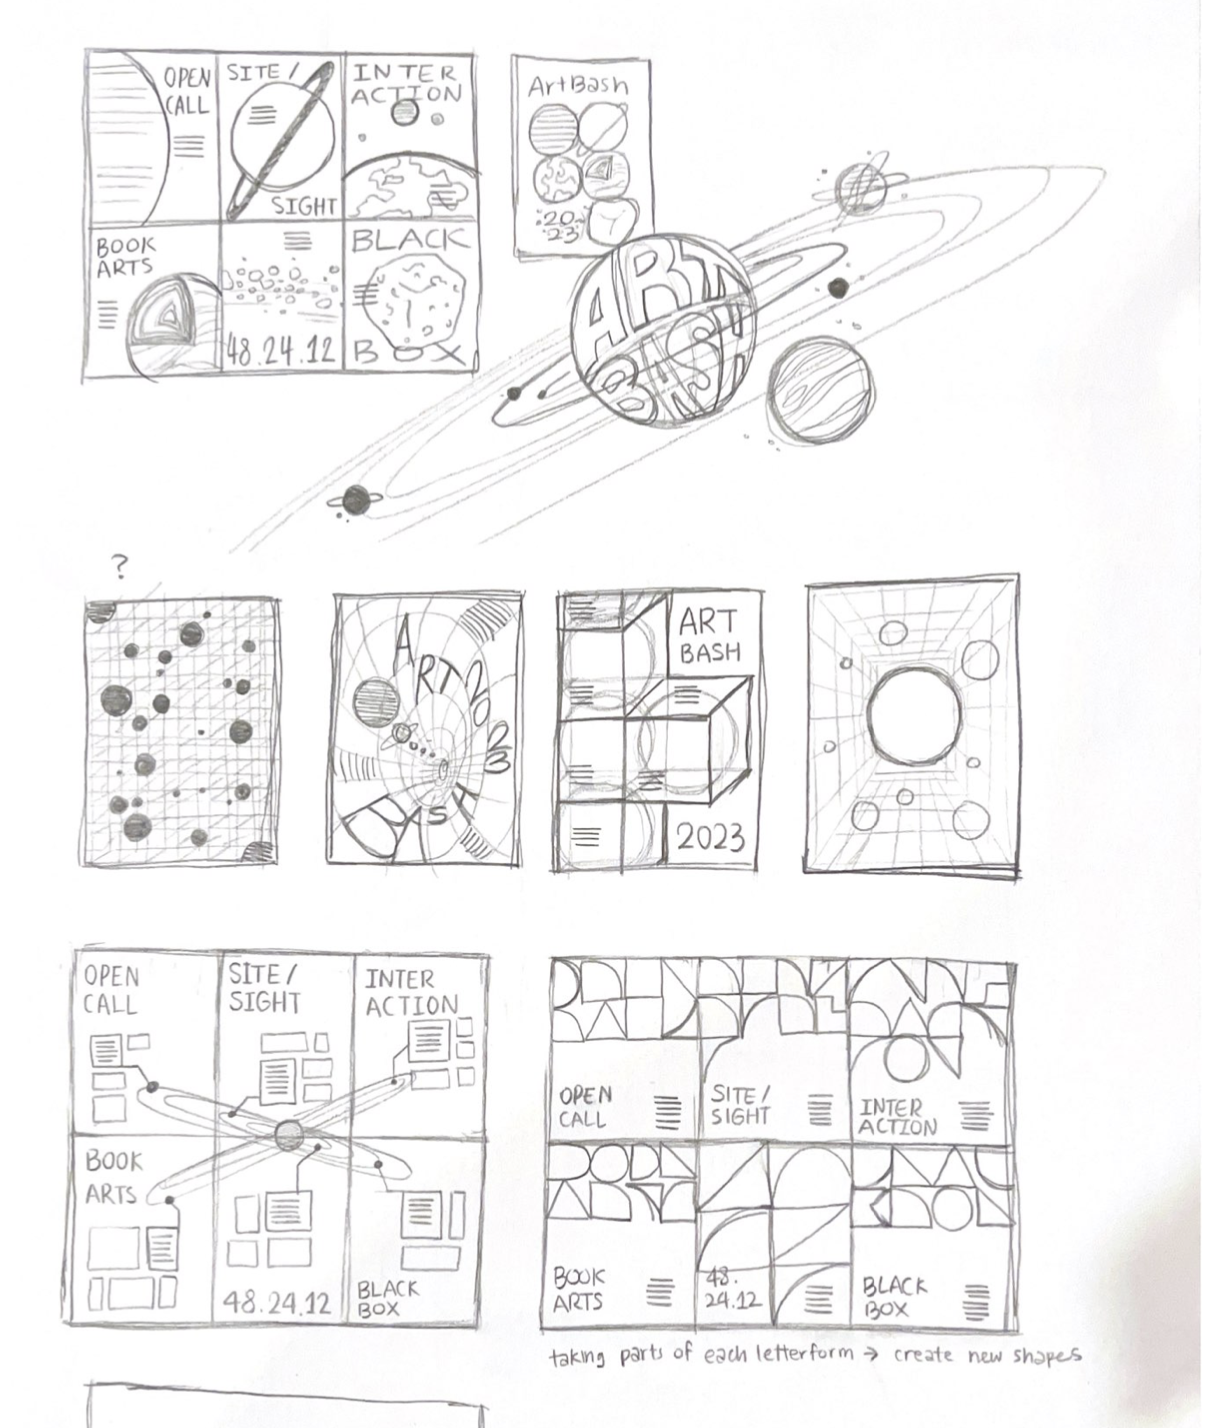 OPEN
CALL
SITE /
SIGHT
INTER
ACTION
BOOK
ARTS
48.24.12
BLACK
BOX
ArtBash
20
23
ART
BASH
?
ART 2023
ART
BASH
2023
OPEN
CALL
SITE /
SIGHT
INTER
ACTION
BOOK
ARTS
48.24.12
BLACK
BOX
OPEN
CALL
SITE /
SIGHT
INTER
ACTION
BOOK
ARTS
48.
24.12
BLACK
BOX
taking parts of each letterform → create new shapes